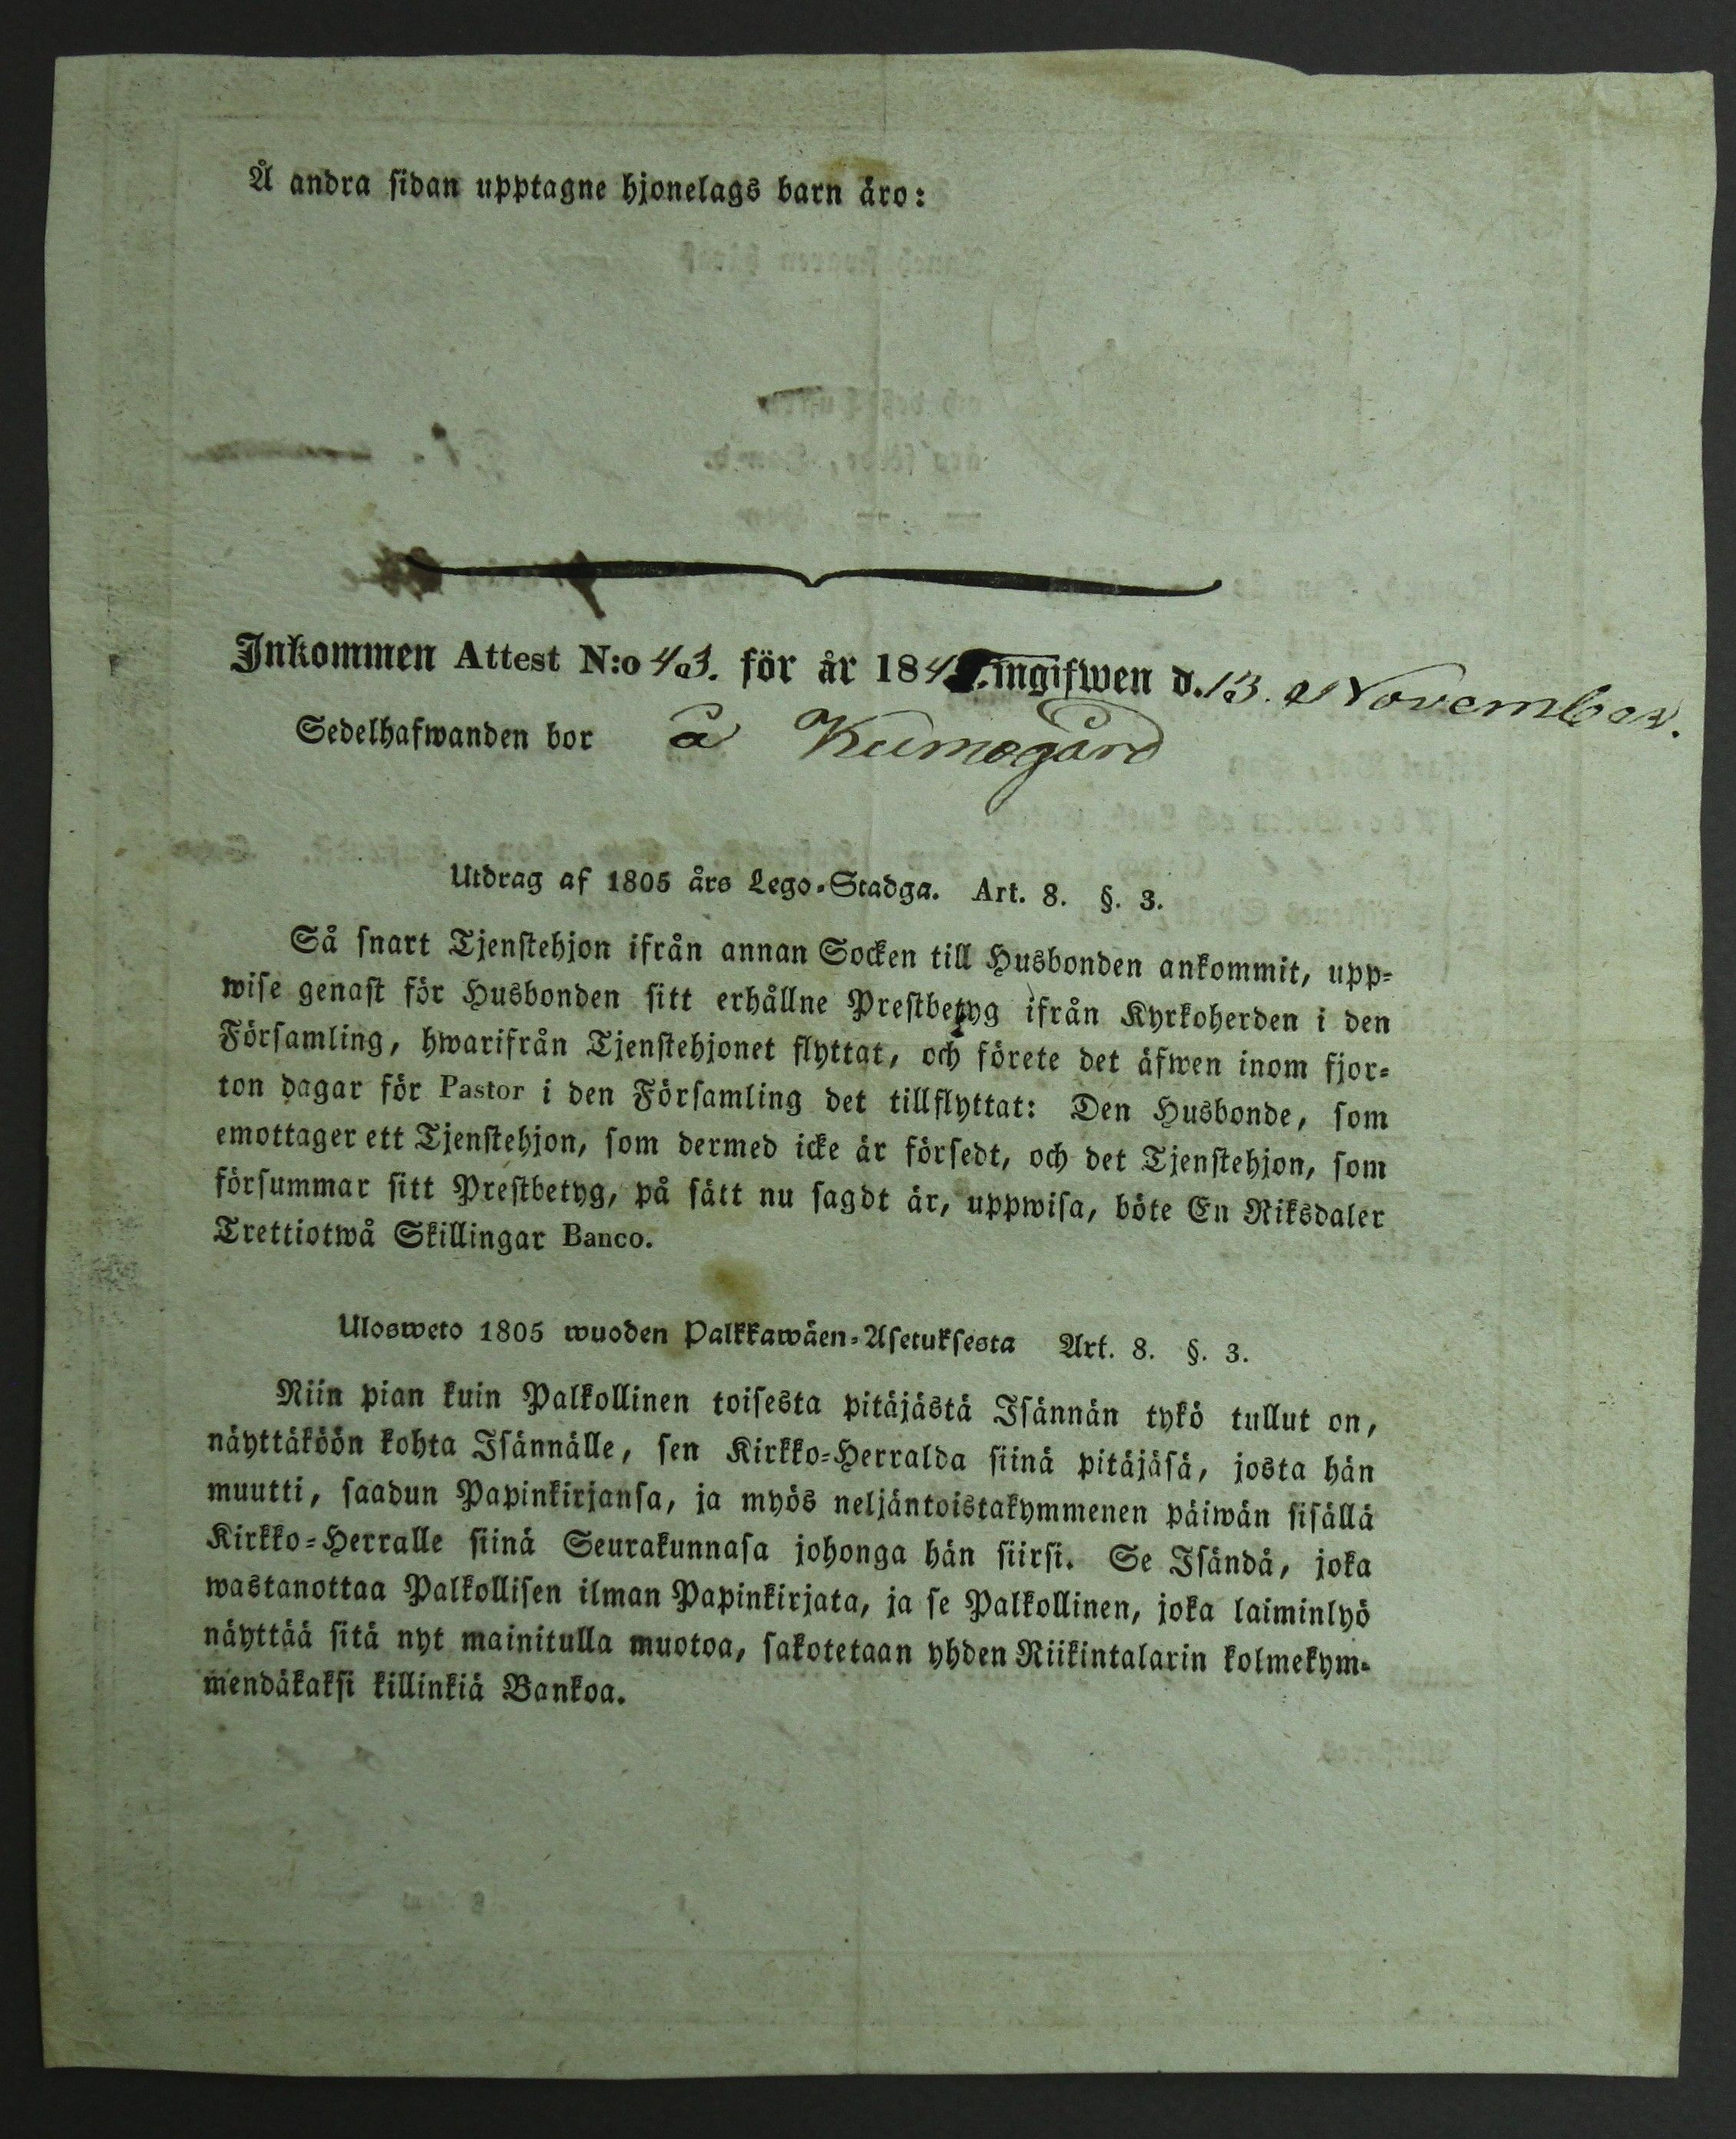 Å andra sidan upptagne hjonelags barn äro:
Inkommen Attest N:o 43. för år 184 ingifwen d. 13. November.
Sedelhafwanden bor å Kumogård
Utdrag af 1805 års Lego-Stadga. Art. 8. §. 3.
Så snart Tjenstehjon ifrån annan Socken till Husbonden ankommit, upp-
wise genast för Husbonden sitt erhållne Prestbetyg ifrån Kyrkoherden i den
Församling, hwarifrån Tjenstehjonet flyttat, och förete det äfwen inom fjor-
ton dagar för Pastor i den Församling det tillflyttat: Den Husbonde, som
emottager ett Tjenstehjon, som dermed icke är försedt, och det Tjenstehjon, som
försummar sitt Prestbetyg, på sätt nu sagdt är, uppwisa, böte En Riksdaler
Trettiotwå Skillingar Banco.
Ulosweto 1805 wuoden Palkkawäen-Asetuksesta Art. 8. §. 3.
Niin pian kuin Palkollinen toisesta pitäjästä Isännän tykö tullut on,
näyttäköön kohta Isännälle, sen Kirkko-Herralda siinä pitäjäsä, josta hän
muutti, saadun Papinkirjansa, ja myös neljäntoistakymmenen päiwän sisällä
Kirkko-Herralle siinä Seurakunnasa johonga hän siirsi. Se Isändä, joka
wastanottaa Palkollisen ilman Papinkirjata, ja se Palkollinen, joka laiminlyö
näyttää sitä nyt mainitulla muotoa, sakotetaan yhden Riikintalarin kolmekym-
mendäkaksi killinkiä Bankoa.